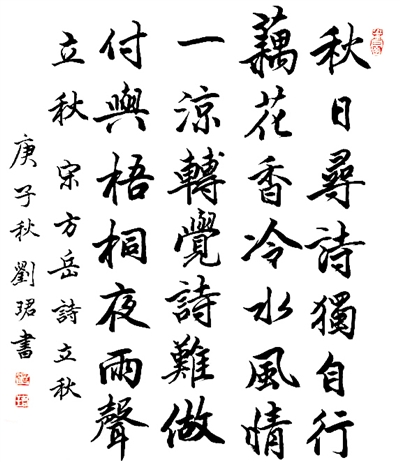 秋日尋詩獨自行
藕花香冷水風情
一涼轉覺詩難做
付與梧桐夜雨聲
立秋 宋方岳詩立秋
庚子秋劉珺書